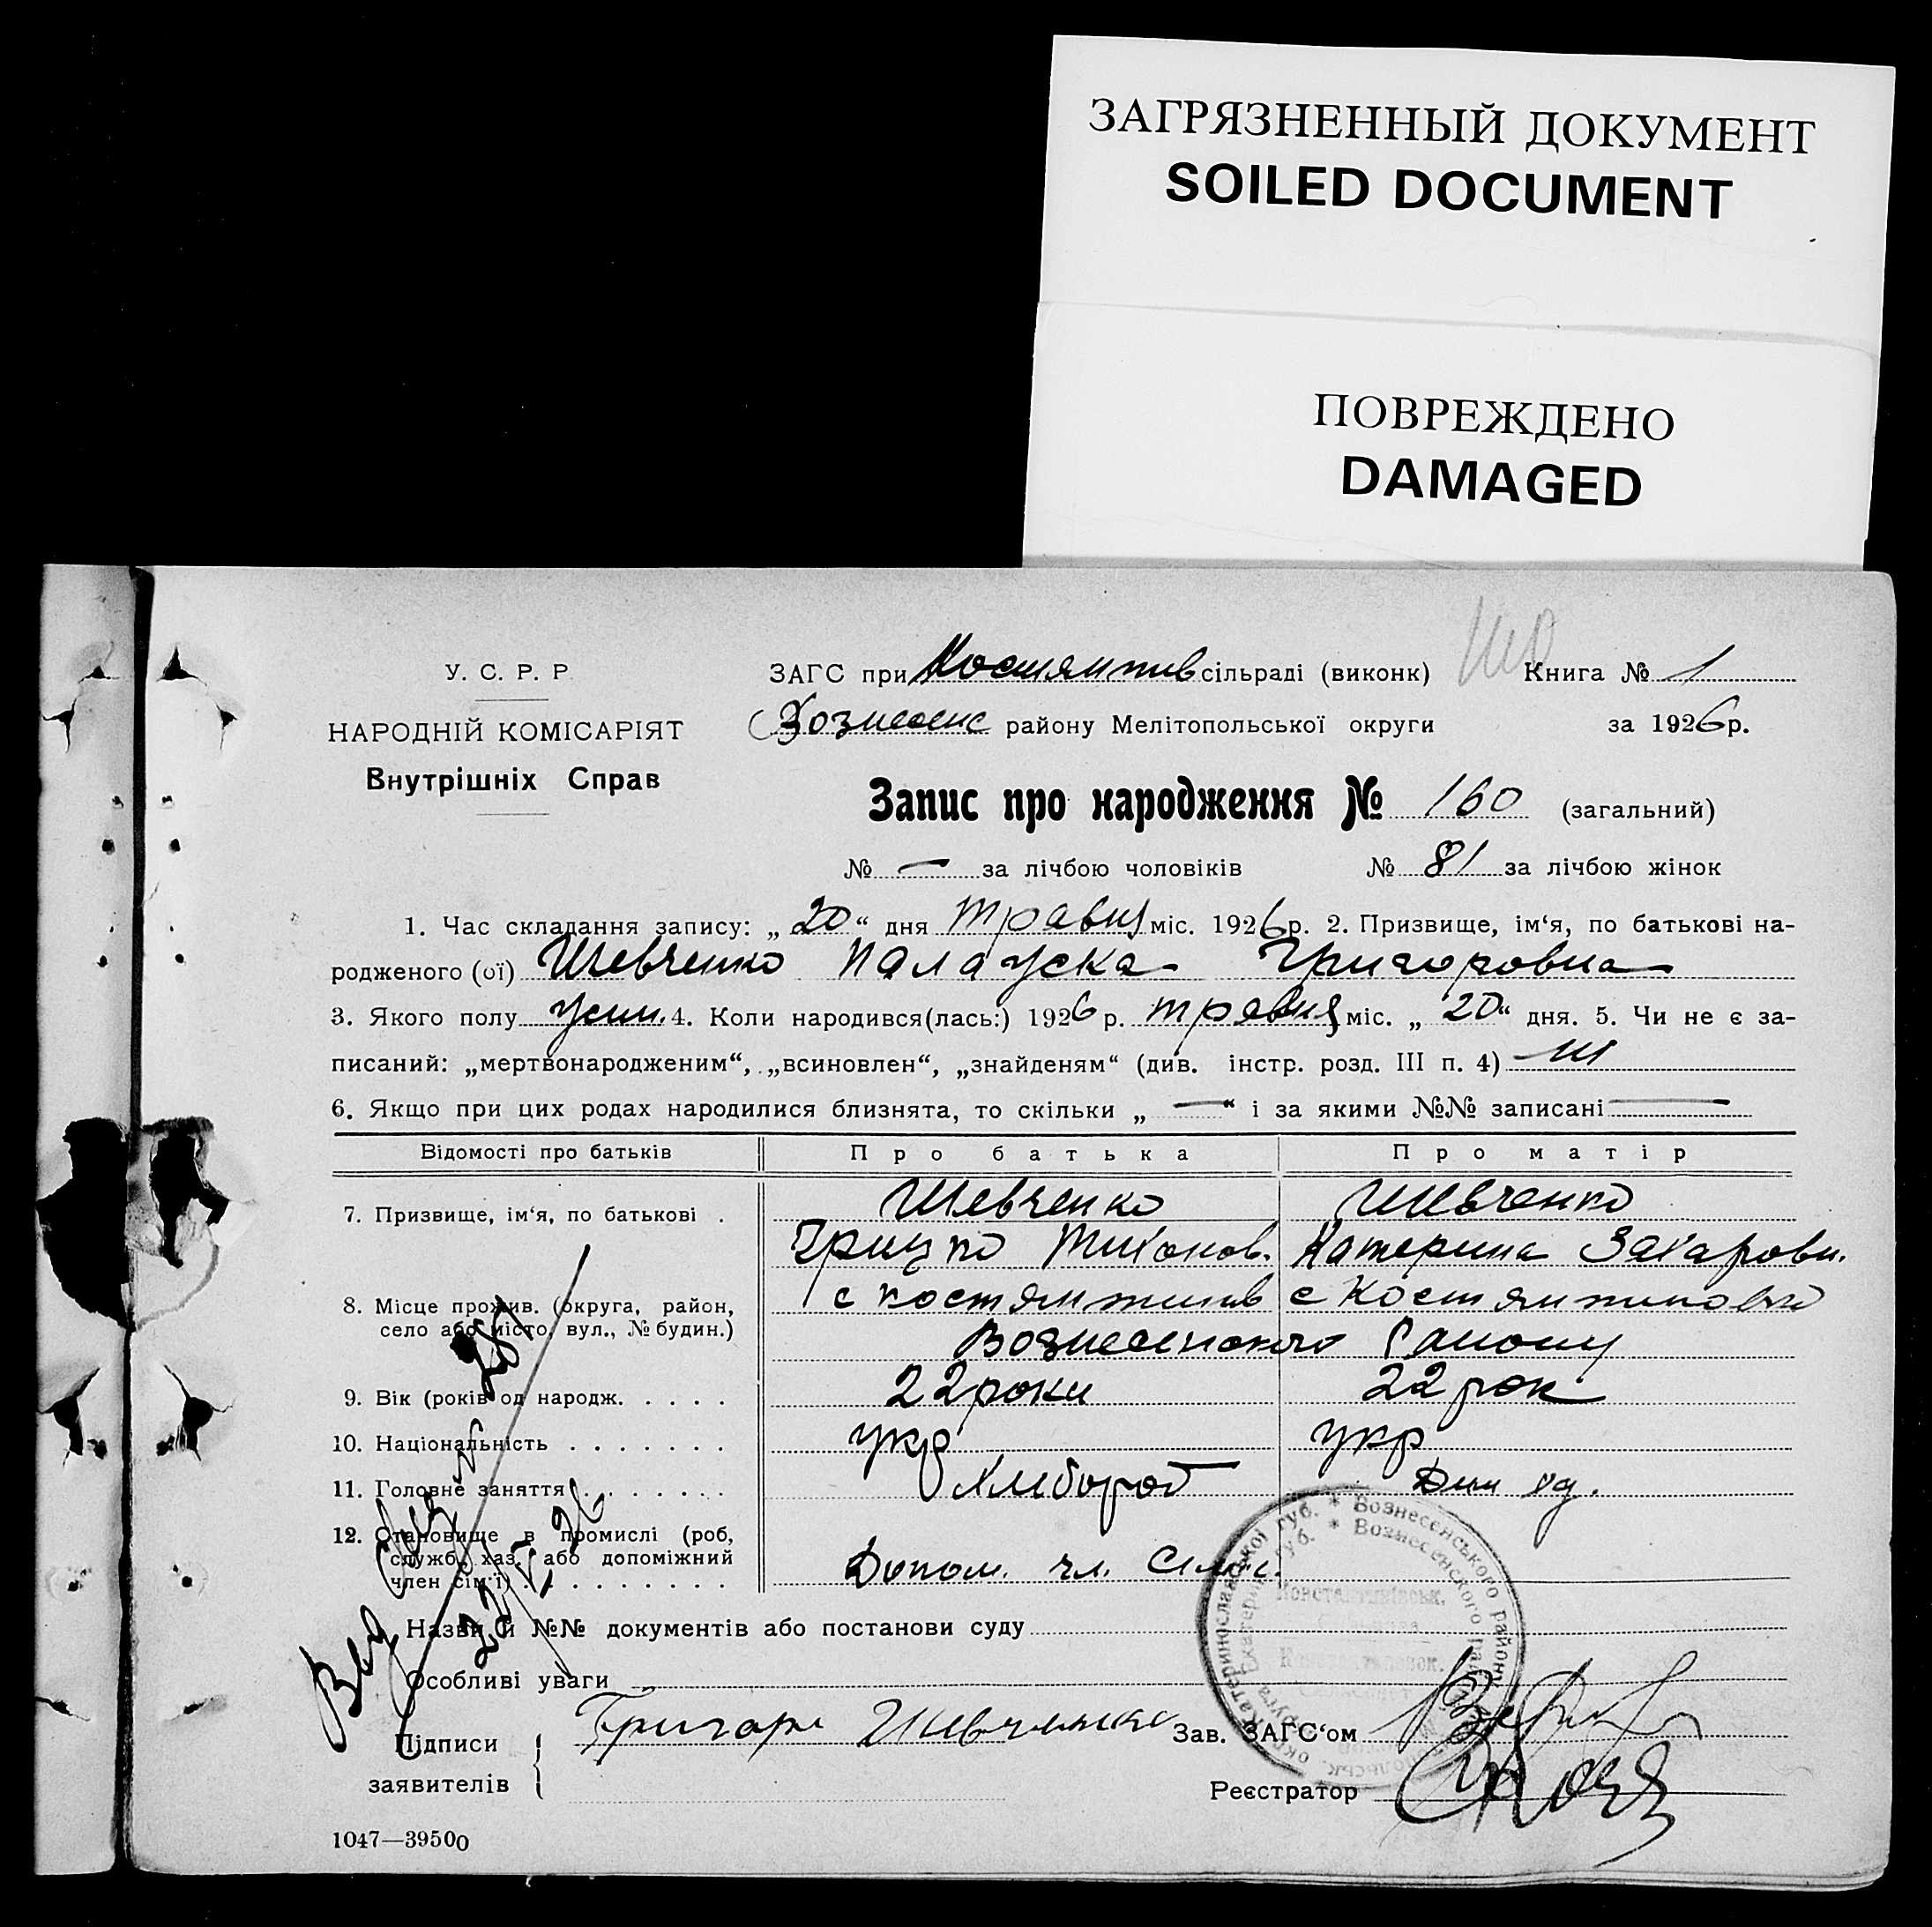 ЗАГРЯЗНЕННЫЙ ДОКУМЕНТ
SOILED DOCUMENT
ПОВРЕЖДЕНО
DAMAGED
У. С. Р. Р.
НАРОДНІЙ КОМІСАРІЯТ
Внутрішніх Справ
ЗАГС при Костянтив сільраді (виконк) Книга № 1
Вознесенс району Мелітопольської округи за 1926 р.
Запис про народження № 160 (загальний)
№ — за лічбою чоловіків № 81 за лічбою жінок
1. Час складання запису: „20“ дня травня міс. 1926 р. 2. Призвище, ім‘я, по батькові на-
родженого (ої) Шевченко Григоровна
3. Якого полу 4. Коли народився(лась:) 1926 р. травня міс. „20“ дня. 5. Чи не є за-
писаний: „мертвонародженим“, „всиновлен“, „знайденям“ (див. інстр. розд. III п. 4)
6. Якщо при цих родах народилися близнята, то скільки „—“ і за якими №№ записані —
Відомості про батьків Про батька Про матір
7. Призвище, ім‘я, по батькові . Шевченко Шевченко
Грицко Тихонов. Катерина Захаровн.
8. Місце прожив. (округа, район, с Костянтинів с Костянтиновка
село або місто, вул., № будин.)
Вознесенского Району
9. Вік (років од народж. . . . . 22 роки 22 рок
10. Національність . . . . . . . укр укр
11. Головне заняття . . . . . . . Хлибороб Дом
12. Становище в промислі (роб,
служб, хаз. або допоміжний
член сім‘ї) . . . . . . . . . Допом. чл. Сімї.
Назви й №№ документів або постанови суду
Особливі уваги
Підписи Григорі Шевченко Зав. ЗАГС‘ом
заявителів
Реєстратор
1047—39500